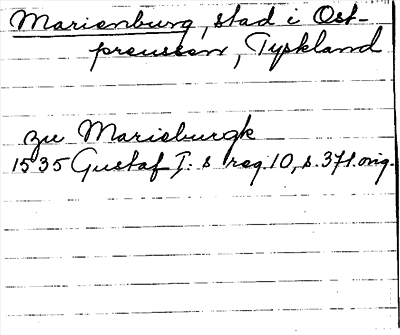 Marienburg, stad i Ost-
preussen, Tyskland
zu Marieburgk
1535 Gustaf I: s reg. 10, s. 371. orig.